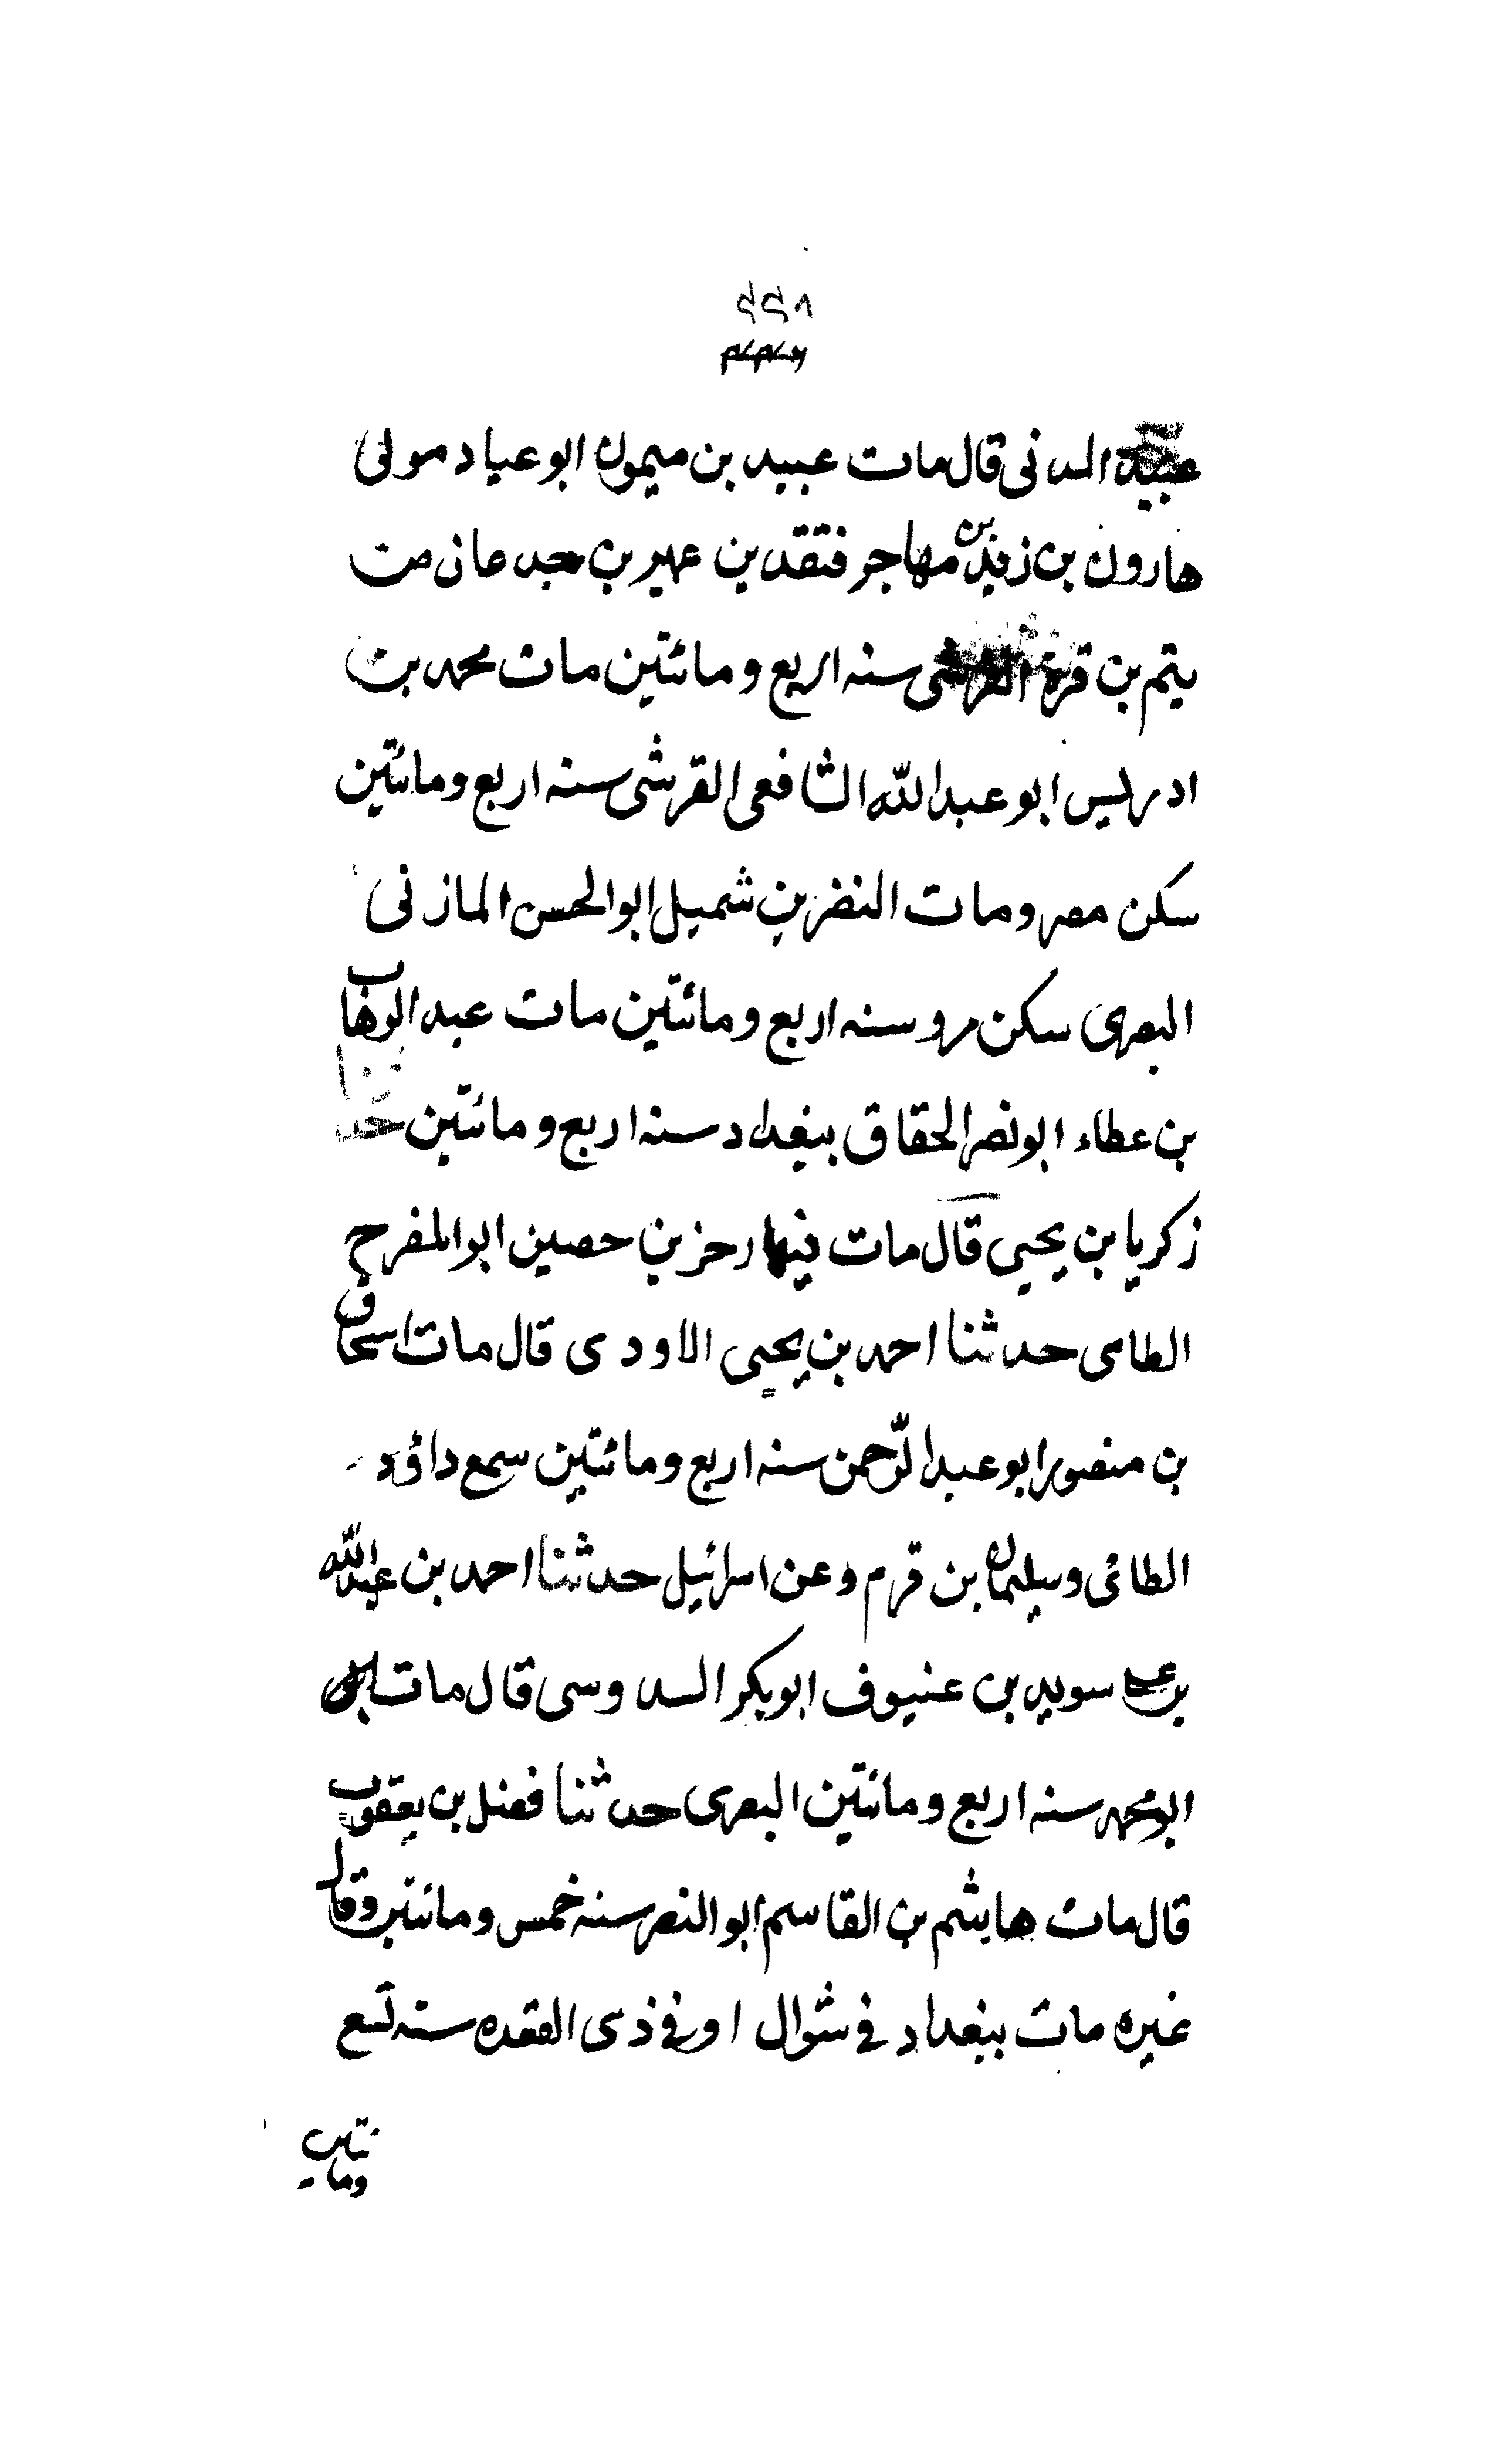 عبيد المدنى قال مات عبيد بن ميمون ابو عياد مولى
هارون بن زيد بن مهاجر فتقد بن عمير بن جدعان من
يتم بن قرة القرشى سنه اربع ومائتين مات محمد بن
ادريس ابو عبد الله الشافعى القرشى سنه اربع ومائتين
سكن مصر ومات النضر بن شميل ابو الحسن المازنى
البصرى سكن مرو سنه اربع ومائتين مات عبد الوهاب
بن عطاء ابو نصر الحقاق ببغداد سنه اربع ومائتين حدثنا
زكريا بن يحيى قال مات فيها رحز بن حصين ابو المفرح
الطامى حدثنا احمد بن يحيى الاودى قال مات اسحاق
بن منصور ابو عبد الرّحمن سنه اربع ومائتين سمع داؤد
الطائى وسليمان بن قرم وعن اسرائيل حدثنا احمد بن عبد اللّه
بن سويد بن عنيوف ابو بكر السدوسى قال مات
ابو محمد سنه اربع ومائتين البصرى حدثنا فضل بن يعقوب
قال مات هاشم بن القاسم ابو النصر سنه خمس ومائتين وقال
غيره مات ببغداد فى شوال او فى ذى القعده سنه تسع
ومائتين